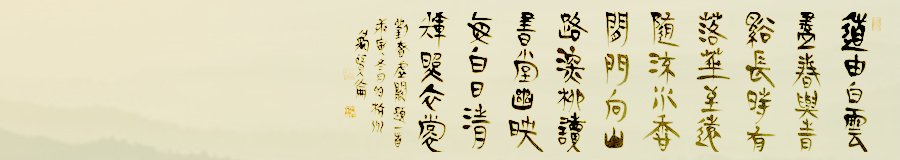 道由白雲
盡春與青
谿長時有
落華至遠
隨流水香
閒門向山
路深柳讀
書堂幽映
每白日清
輝照衣裳
劉眘虛闕題一首
冬日於杭州